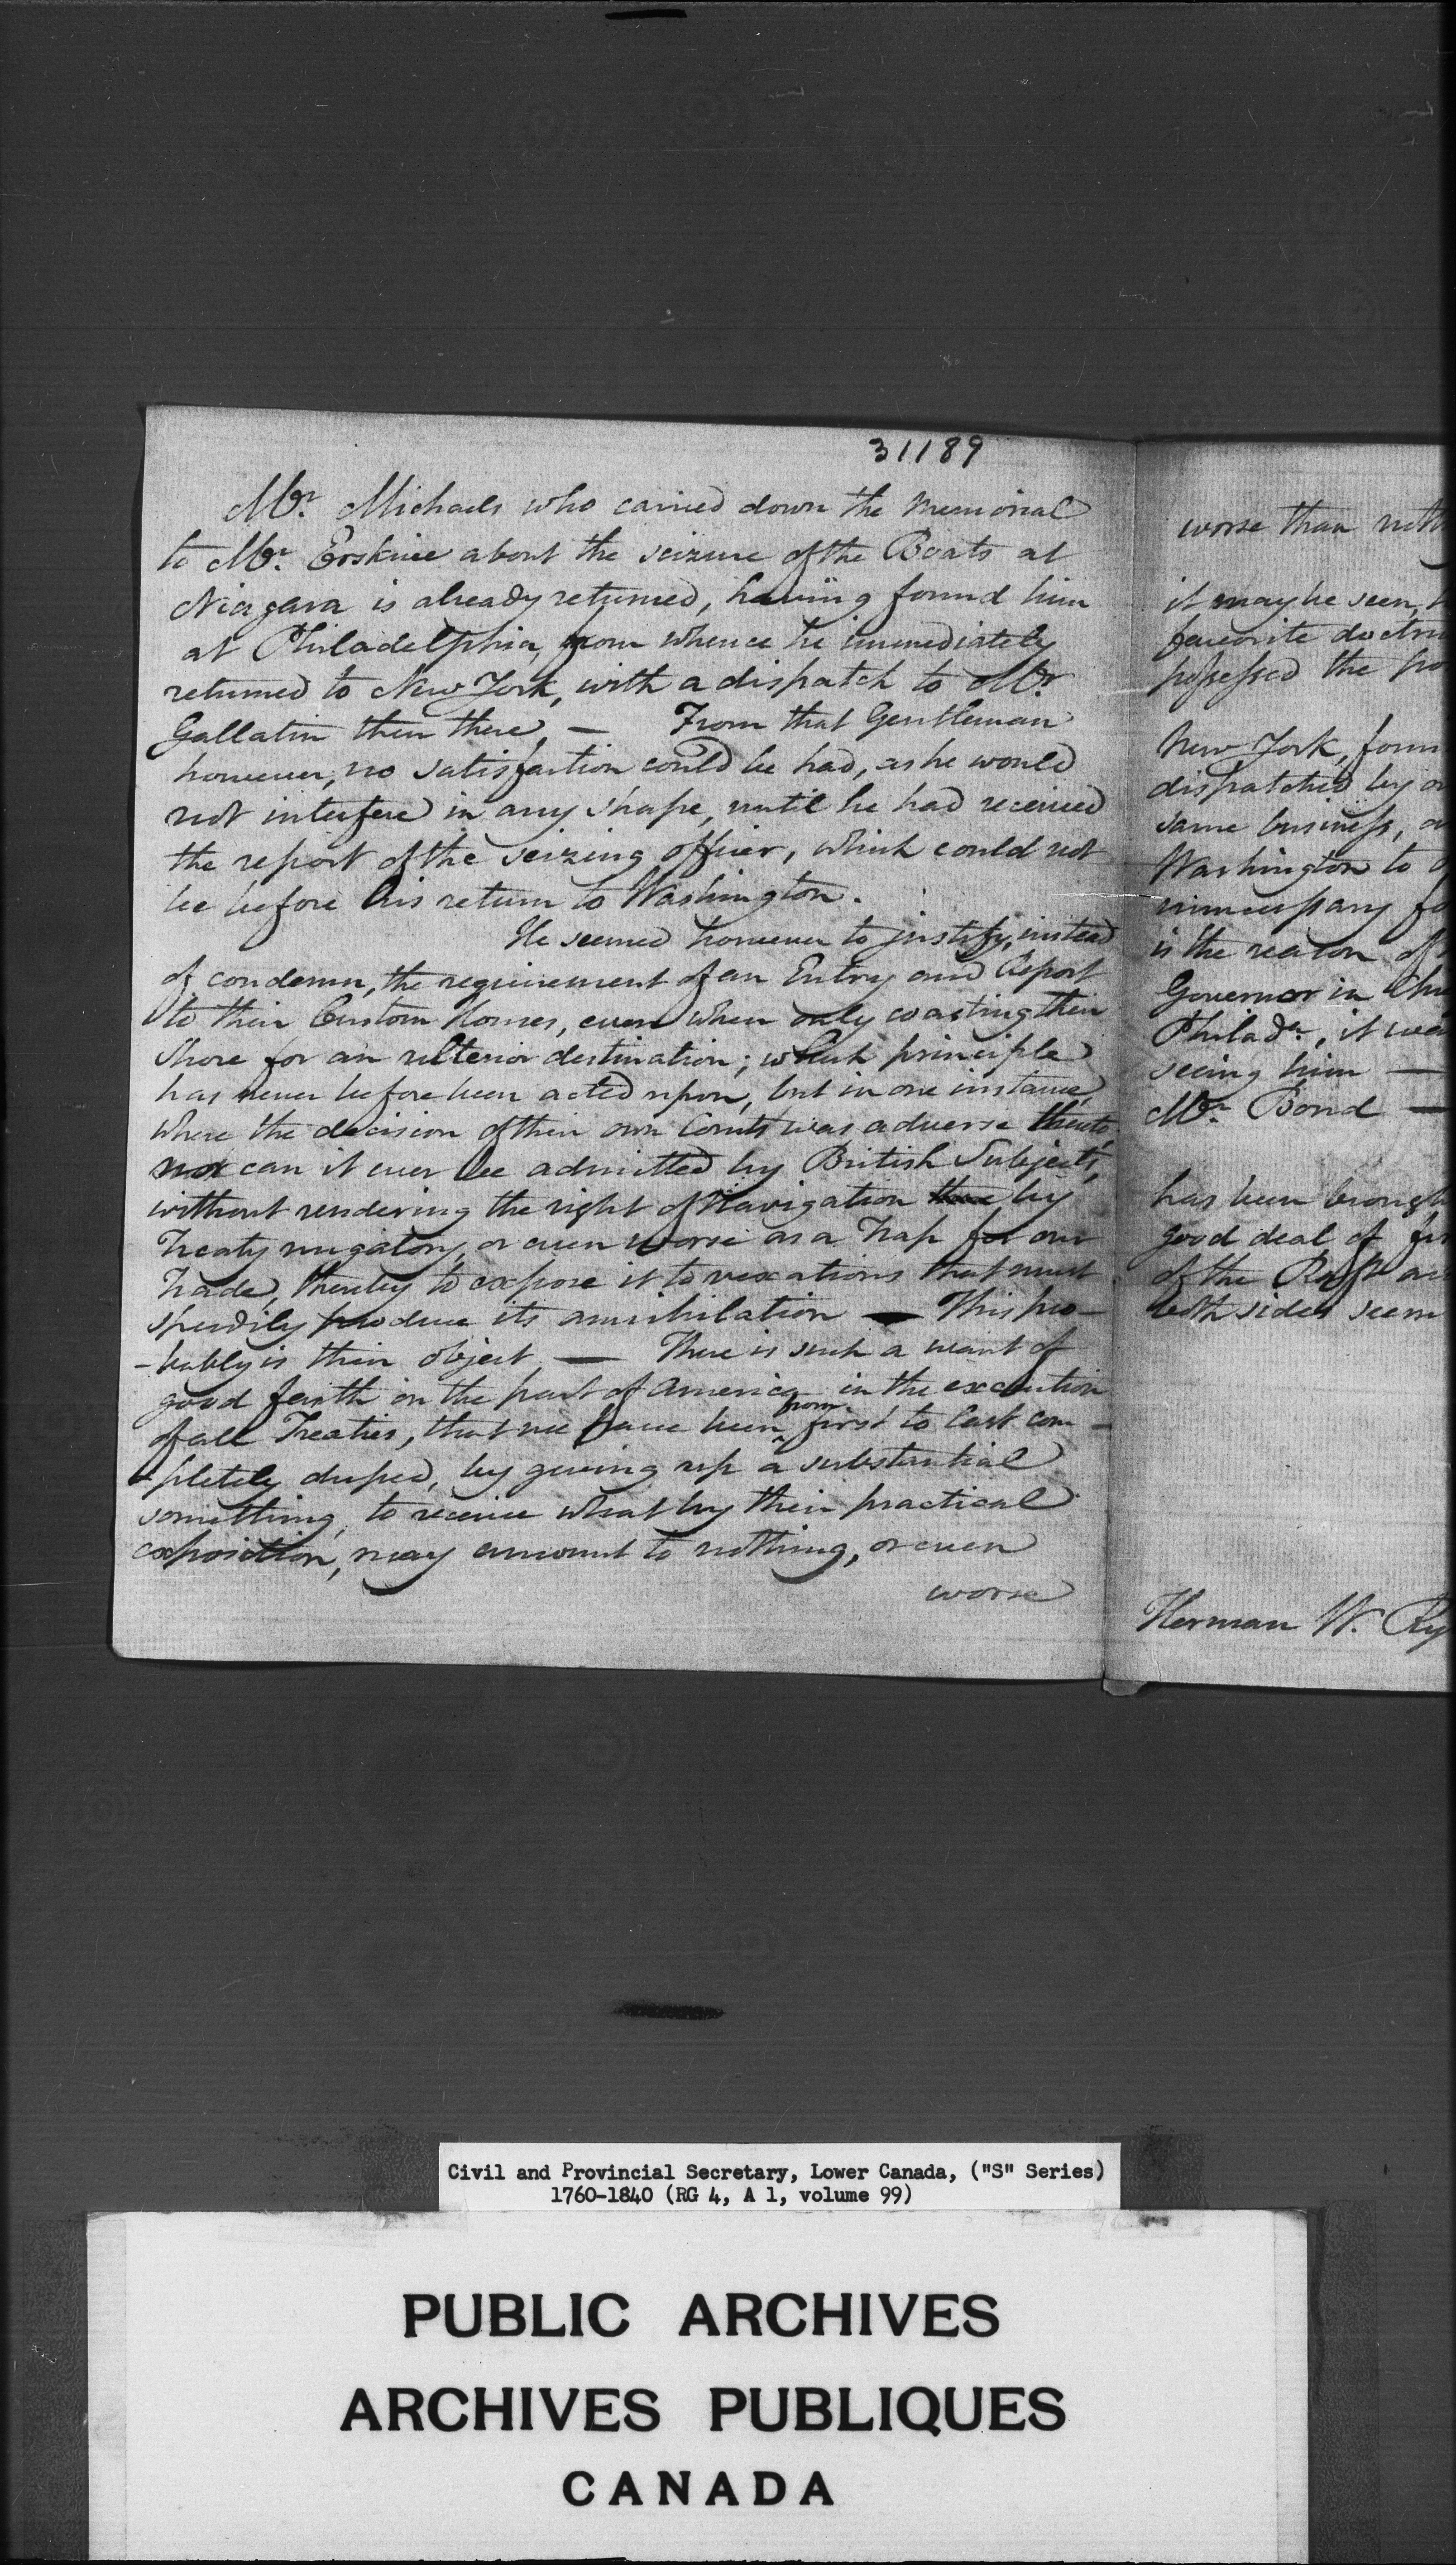 31189
Mr. Michaels who carried down the Memorial
to Mr. Erskine about the seizure of the Boats at
Niagara is already returned, having found him
at Philadelphia, from whence he immediately
returned to New York, with a dispatch to Mr
Gallatin then there, — From that Gentleman
however, no satisfaction could be had, as he would
not interfere in any shape, until he had received
the report of the seizing officer, which could not
be before his return to Washington.
He seemed however to justify, instead
of condemn, the requirement of an Entry and Report
to their Custom Houses, even when only coasting their
Shore for an ulterior destination; which principle
has never before been acted upon, but in one instance,
where the decision of their own Courts was adverse thereto,
nor can it ever be admitted by British Subjects,
without rendering the right of Navigation by
Treaty nugatory, or even worse as a Trap for our
Trade, thereby to expose it to vexations that must
speedily produce its annihilation — This pro-
-bably is their object, — There is such a want of
good faith on the part of America in the execution
of all Treaties, that we have been from first to last com-
-pletely duped, by giving up a substantial
something, to receive what by their practical
exposition, may amount to nothing, or even
worse
worse than
it may be seen,
favorite
possessed the
New York,
dispatched by
same business,
Washington to
unnecessary
is the reason of
Governor in
Philada., it
seeing him —
Mr. Bond —
has been
good deal of
of the Raft
both sides seem
Herman W.
Civil and Provincial Secretary, Lower Canada, ("S" Series)
1760-1840 (RG 4, A 1, volume 99)
PUBLIC ARCHIVES
ARCHIVES PUBLIQUES
CANADA